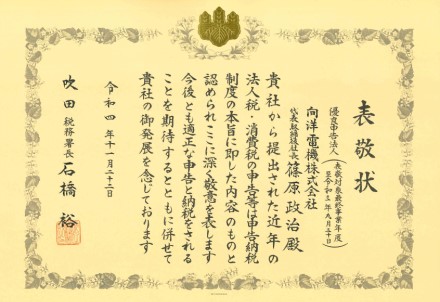 表敬状
優良申告法人
(表敬対象最終事業年度
至令和三年九月三十日)
向洋電機株式会社
代表取締役社長 篠原政治殿
貴社から提出された近年の
法人税・消費税の申告等は申告納税
制度の本旨に即した内容のものと
認められここに深く敬意を表します
今後とも適正な申告と納税をされる
ことを期待するとともに併せて
貴社の御発展を念じております
令和四年十一月二十二日
吹田税務署長 石橋 裕